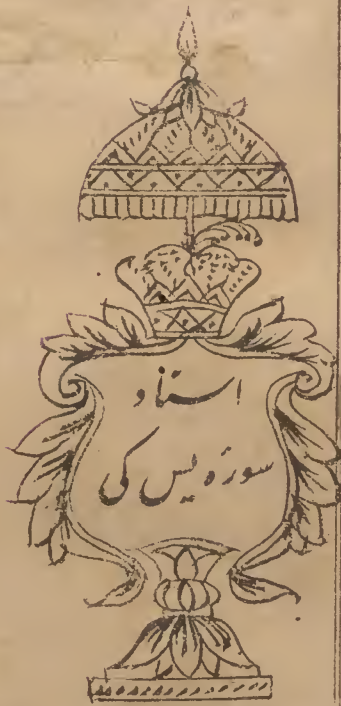 اسناد
سورۂ یس کی